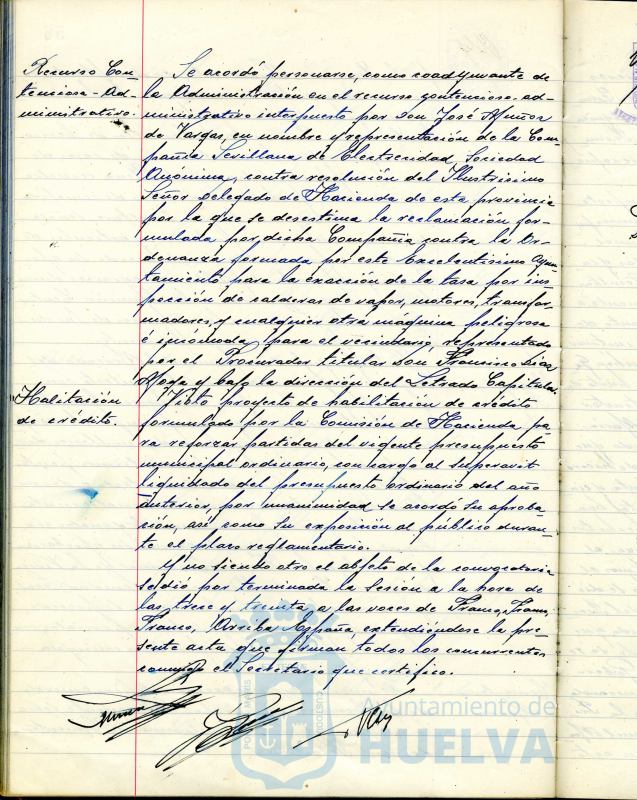 Recurso Con-
tencioso-Ad-
ministrativo.
Se acordó personarse, como coadyuvante de
la Administración en el recurso contencioso-ad-
ministrativo interpuesto por Don José Muñoz
de Vargas, en nombre y representación de la Com-
pañia Sevillana de Electricidad, Sociedad
Anónima, contra resolución del Ilustrisimo
Señor Delegado de Hacienda de esta provincia
por la que se desestima la reclamación for-
mulada por dicha Compañia contra la Or-
denanza formada por este Excelentisimo Ayun-
tamiento para la exacción de la tasa por ins-
pección de calderas de vapor, motores, transfor-
madores, y cualquier otra máquina peligrosa
é incomoda para el vecindario, representado
por el Procurador titular Don Francisco Diaz
y bajo la dirección del Letrado Capitular.
Habilitación
de crédito.
Visto proyecto de habilitación de crédito
formulado por la Comisión de Hacienda pa-
ra reforzar partidas del vigente presupuesto
municipal ordinario, con cargo al superavit
liquidado del presupuesto ordinario del año
anterior, por unanimidad se acordó su aproba-
ción, así como su exposición al público duran-
te el plazo reglamentario.
Y no siendo otro el objeto de la convocatoria
se dió por terminada la sesión a la hora de
las trece y treinta a las voces de Franco, Franco,
Franco, Arriba España, extendiéndose la pre-
sente acta que firman todos los concurrentes
conmigo el Secretario que certifico.
Ayuntamiento de
HUELVA